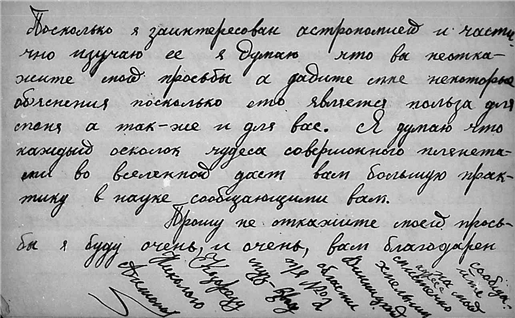 Поскольку я заинтересован астрономией и части-
чно изучаю ее я думаю что вы неотка-
жите моей просьбы а дадите мне некоторые
обяснения поскольку ето является польза для
меня а так-же и для вас. Я думаю что
каждый осколок чудеса совершонного планета-
ми во вселенной даст вам большую прак-
тику в науке сообщающили вам.
Прошу не откажите моей прось-
бы я буду очень, и очень, вам благодарен
сообща-
йте
на мой
адрес
Винницкой
области
№2